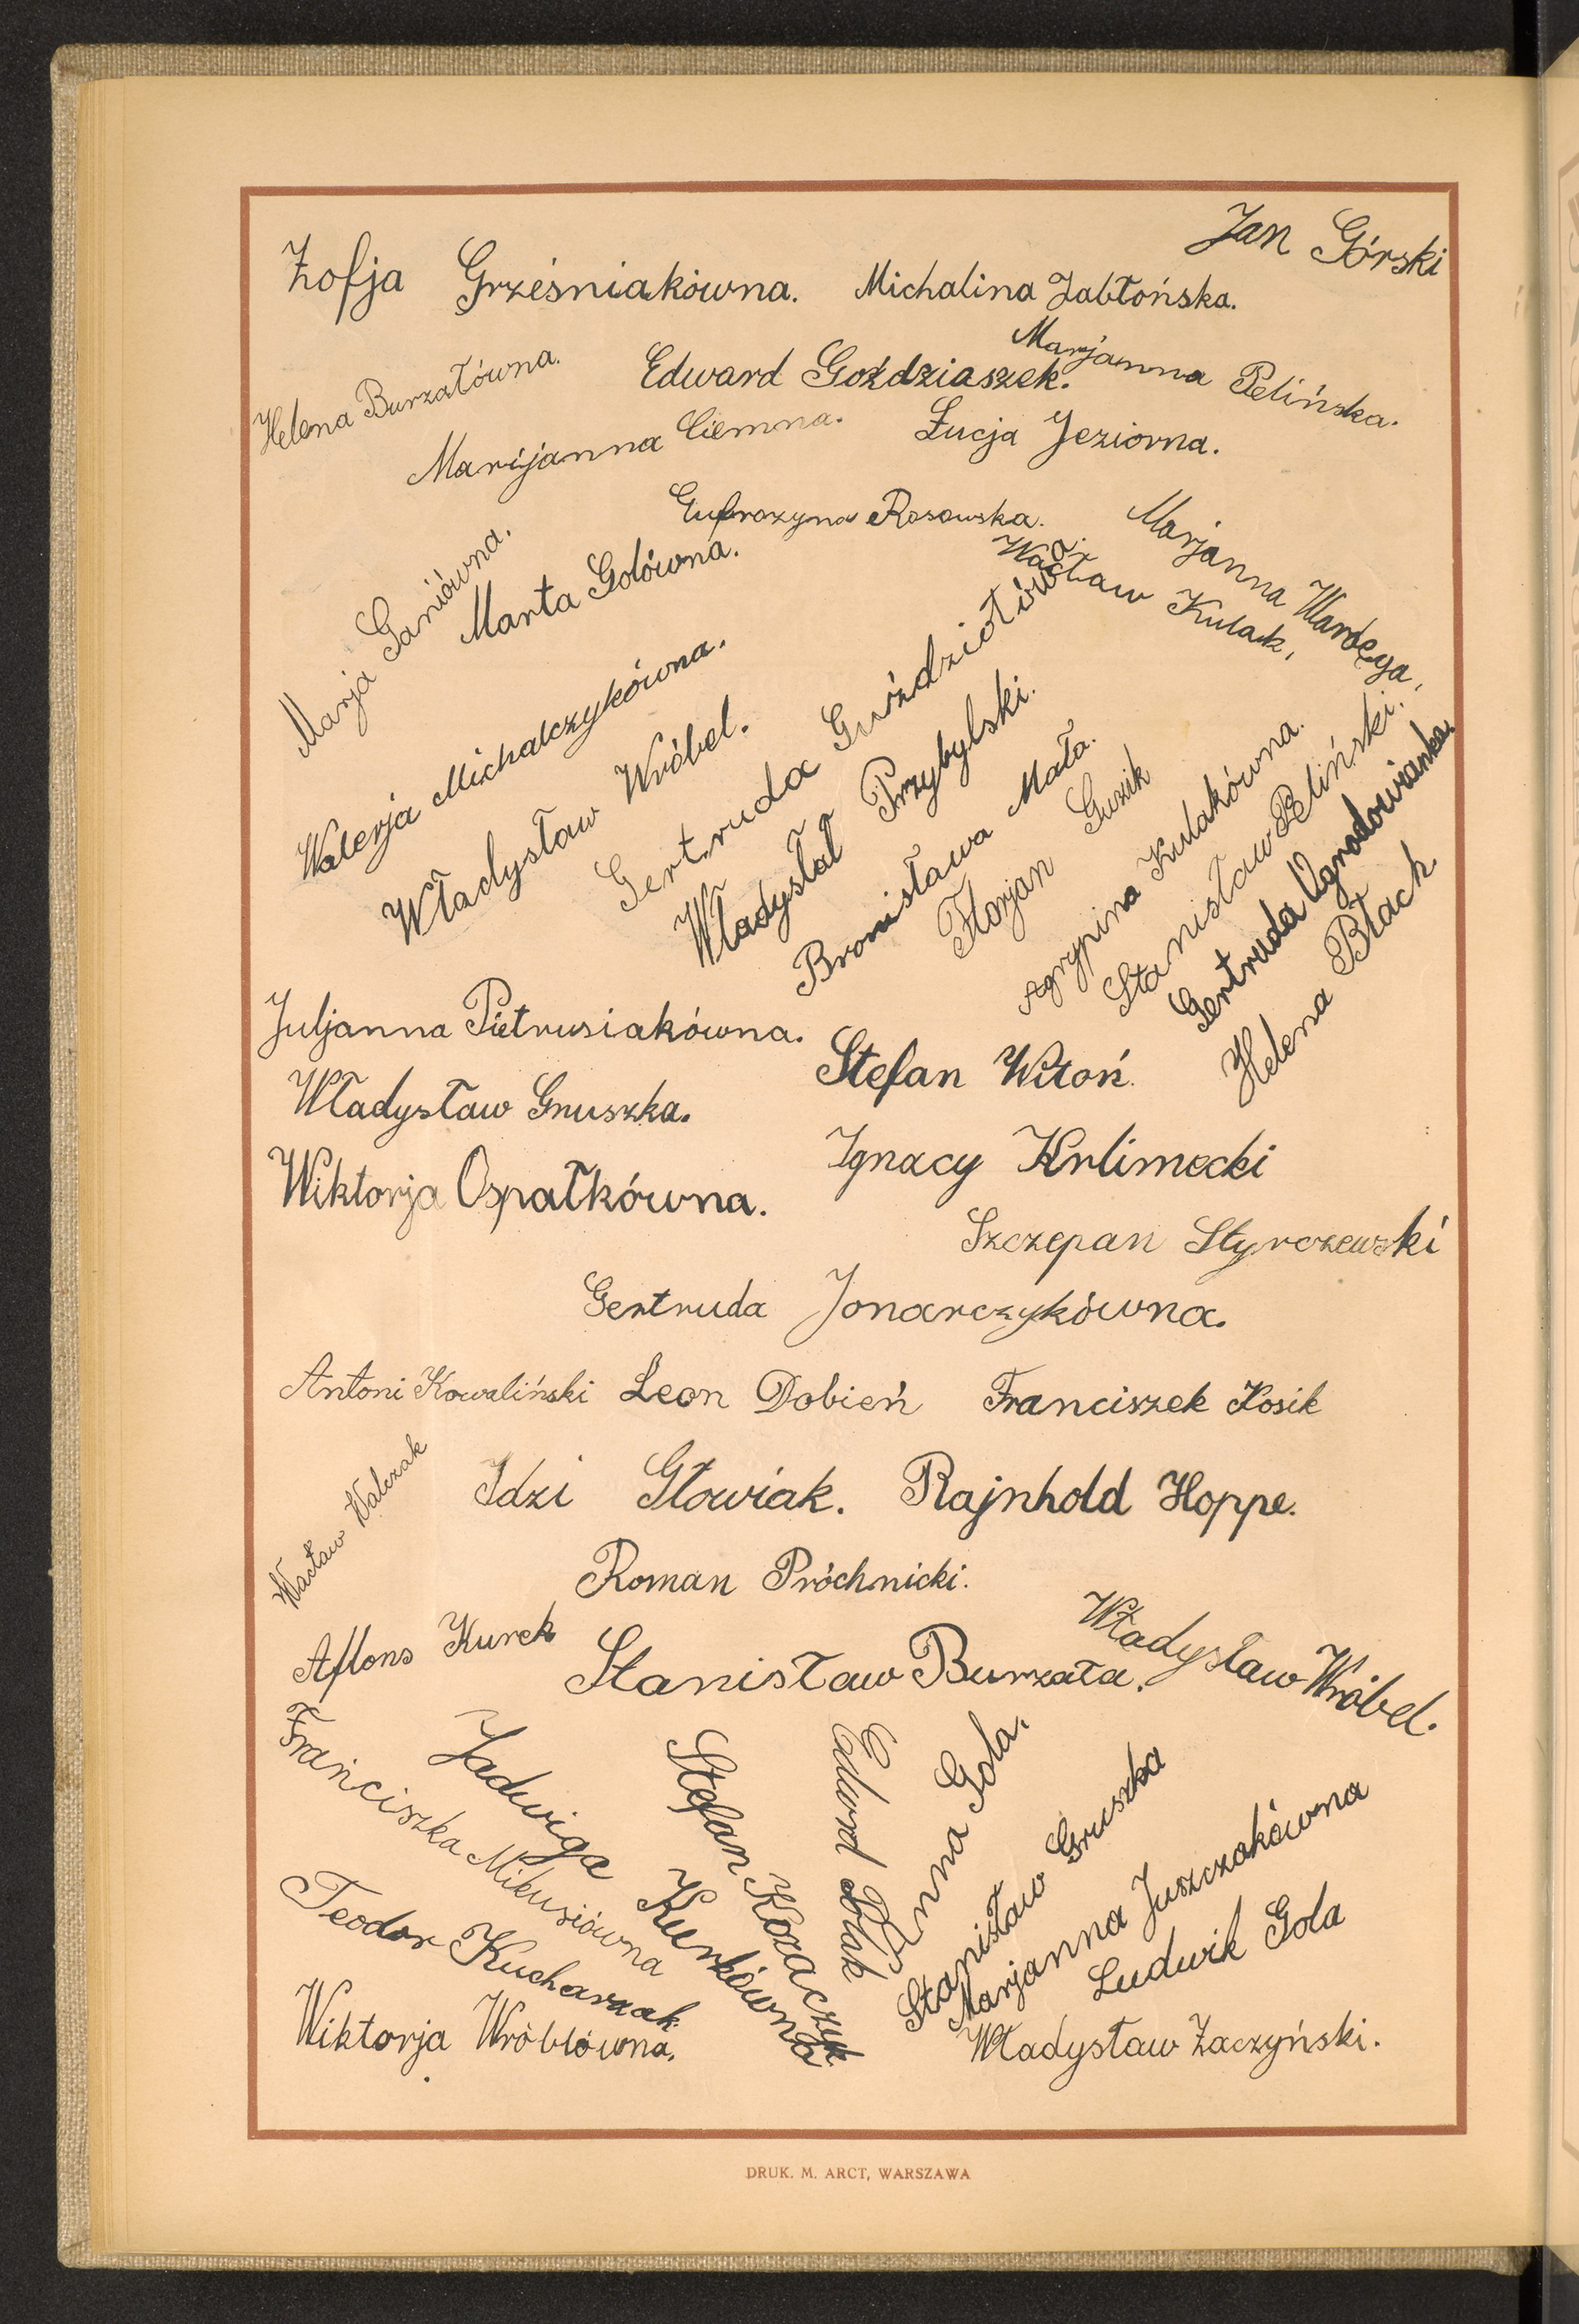 Jan Górski
Zofja Grześniakówna. Michalina Jabłońska.
Helena Burzałówna. Edward Goździaszek. Marjanna Pelińska.
Marijanna Ciemna. Łucja Jeziorna.
Eufrozyna Rosowska.
Marja Ganiówna. Marta Golówna. Wacław Kulak, Marjanna Waręga,
Walerja Michalczykówna.
Władysław Wróbel.
Gertruda Guździołówna.
Władysław Przybylski.
Bronisława Mała.
Florjan Guzik
Agrypina Kulakówna.
Stanisław Peliński.
Gertruda Ogrodowianka.
Helena Błach
Juljanna Pietrusiakówna.
Stefan Witoń.
Władysław Gruszka.
Ignacy Krlimecki
Wiktorja Ospałkówna.
Szczepan Styrczewski
Gertruda Jonarczykówna.
Antoni Kowaliński Leon Dobień Franciszek Kosik
Wacław Walczak
Idzi Głowiak. Rajnhold Hoppe.
Roman Próchnicki.
Aflons Kurek Stanisław Burzała. Władysław Wróbel.
Frańciszka Mikusiówna
Jadwiga Kurkówna
Stefan Kozaczyk
Edward Polak
Anna Gola.
Stanisław Gruszka
Marjanna Juszczakówna
Ludwik Gola
Teodor Kucharzak
Wiktorja Wróblówna.
Władysław Zaczyński.
DRUK. M. ARCT, WARSZAWA